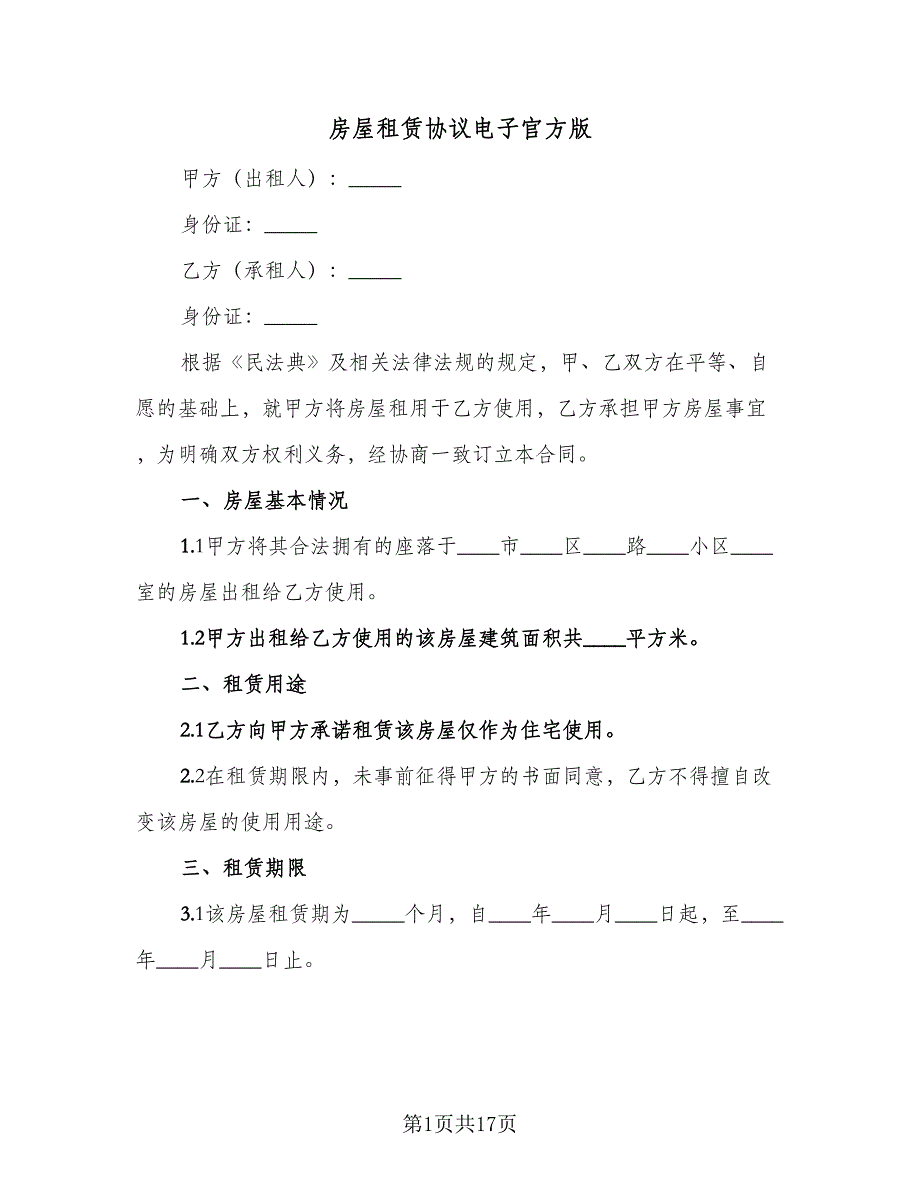 房屋租赁协议电子官方版
甲方（出租人）：_____
身份证：_____
乙方（承租人）：_____
身份证：_____
根据《民法典》及相关法律法规的规定，甲、乙双方在平等、自
愿的基础上，就甲方将房屋租用于乙方使用，乙方承担甲方房屋事宜
，为明确双方权利义务，经协商一致订立本合同。
一、房屋基本情况
1.1甲方将其合法拥有的座落于____市____区____路____小区____
室的房屋出租给乙方使用。
1.2甲方出租给乙方使用的该房屋建筑面积共____平方米。
二、租赁用途
2.1乙方向甲方承诺租赁该房屋仅作为住宅使用。
2.2在租赁期限内，未事前征得甲方的书面同意，乙方不得擅自改
变该房屋的使用用途。
三、租赁期限
3.1该房屋租赁期为_____个月，自____年____月____日起，至____
年____月____日止。
第1页共17页